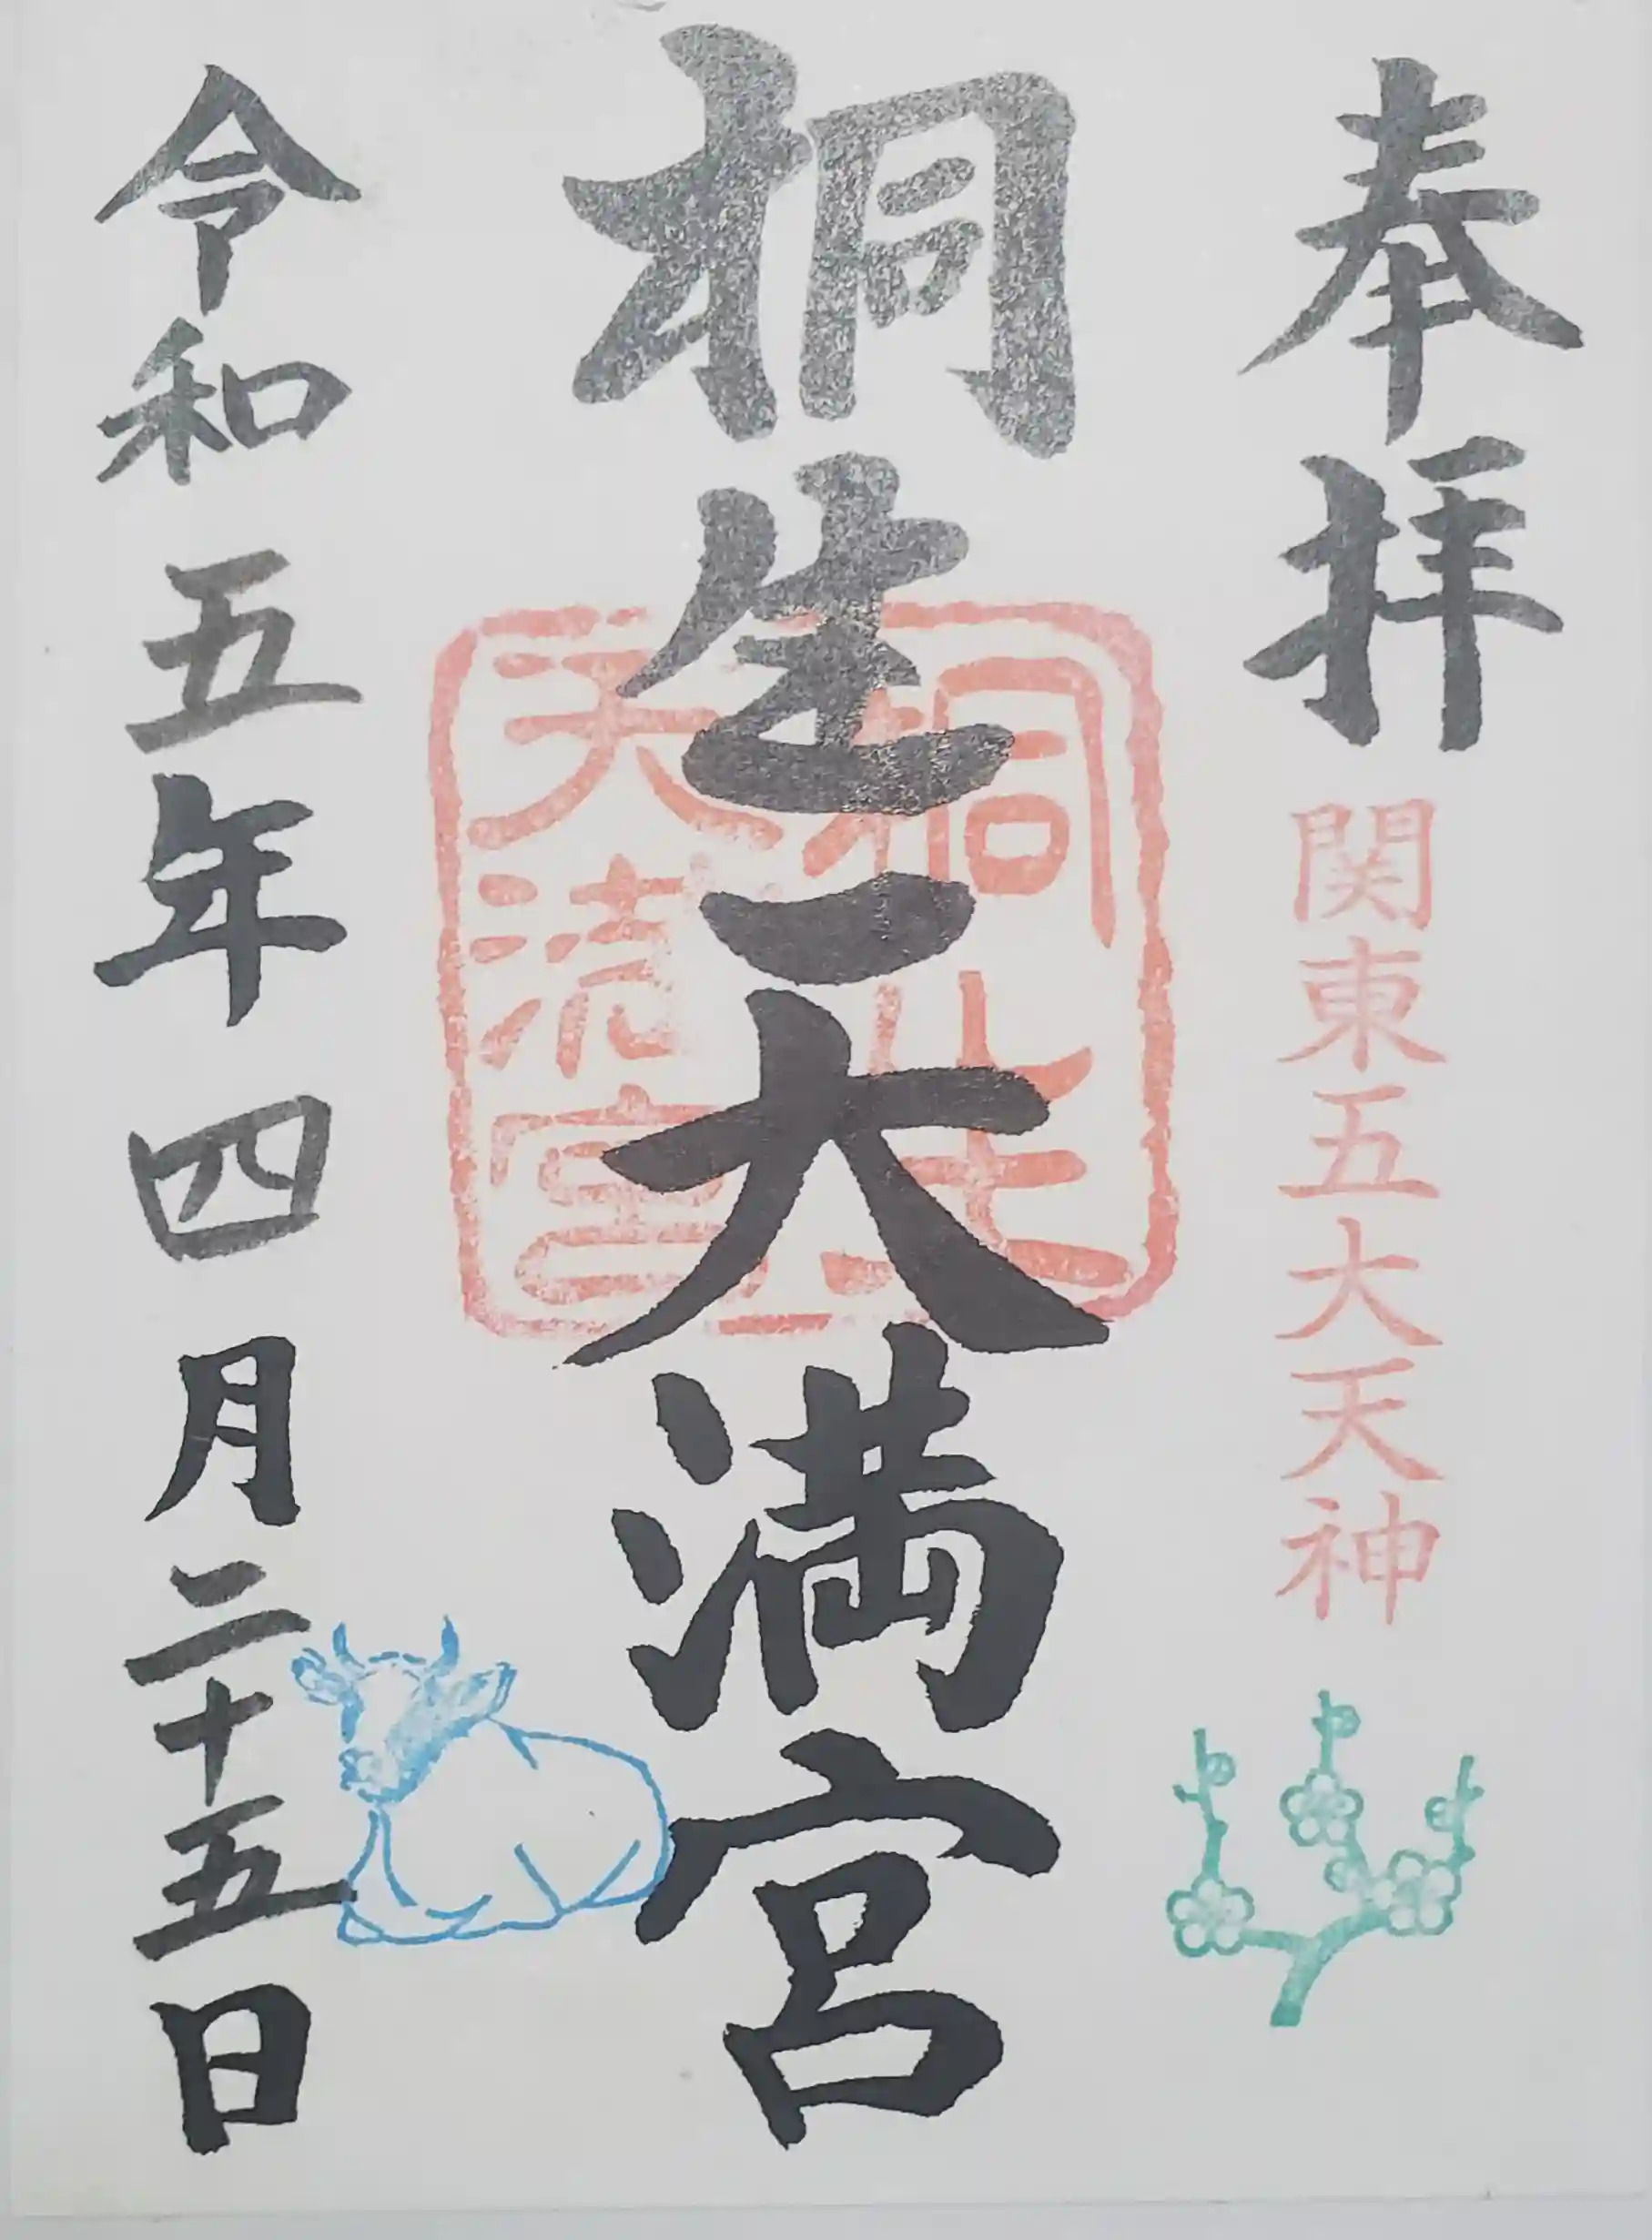 奉拝
関東五大天神
桐生天満宮
桐生
天満宮
令和五年四月二十五日